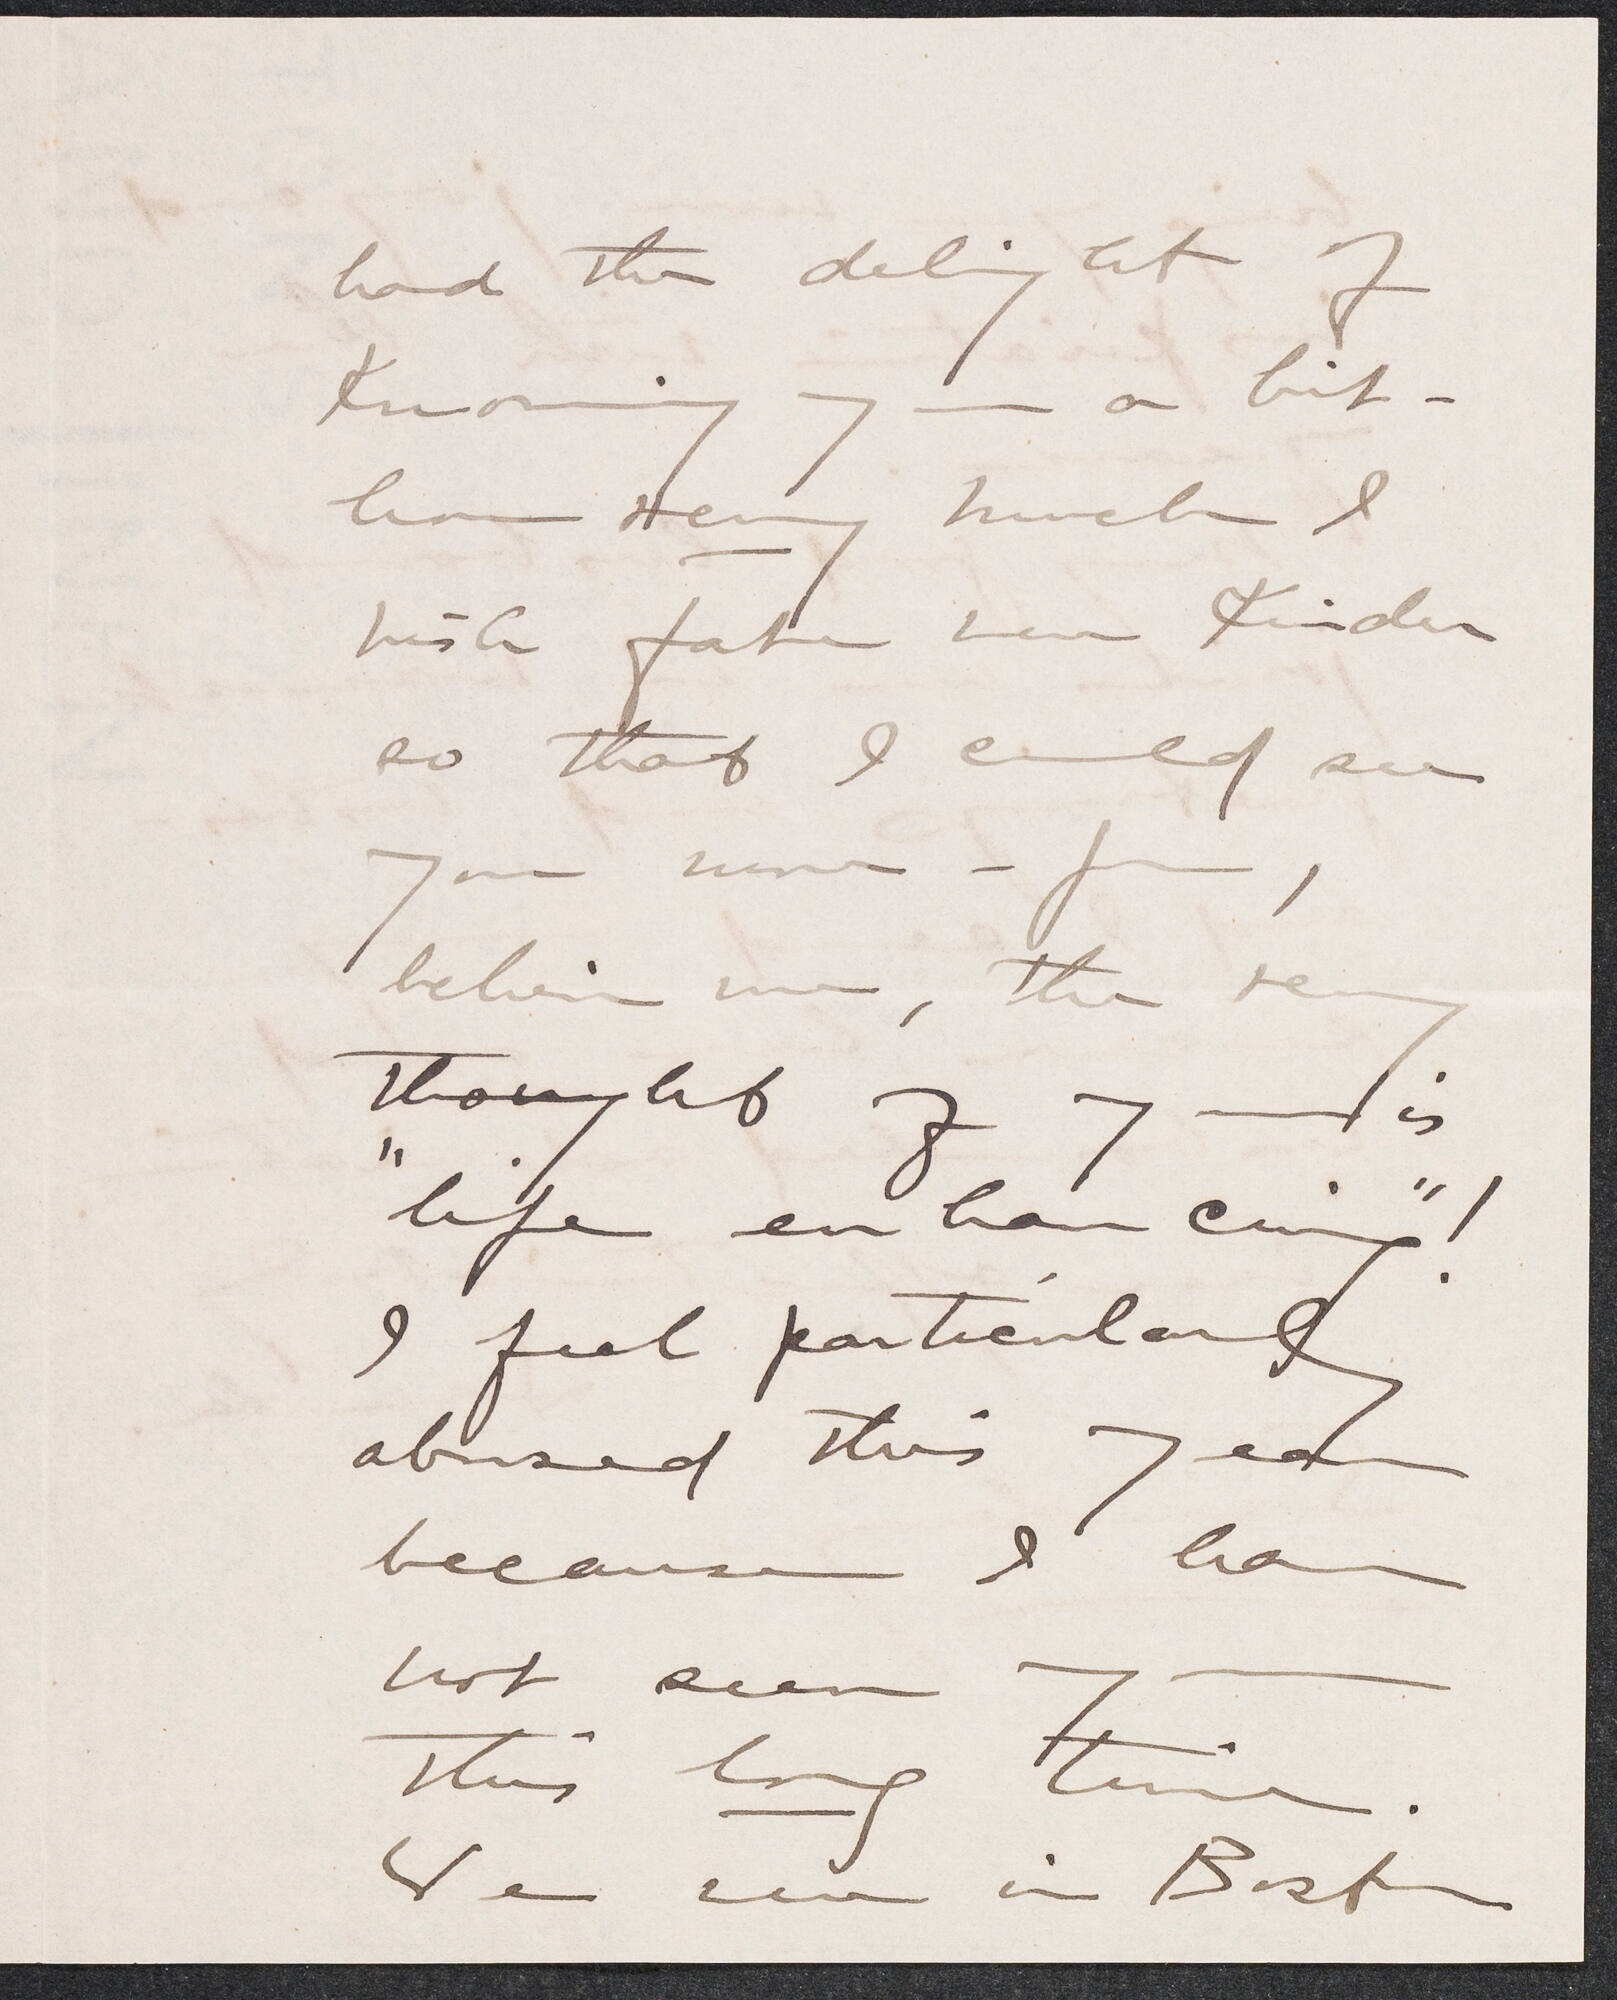 had the delight of
knowing you a bit -
how very much I
wish fate were kinder
so that I could see
you now - for,
believe me, the very
thought of you is
"life enhancing"!
I feel particularly
abused this year
because I have
not seen you
this long time.
We were in Boston